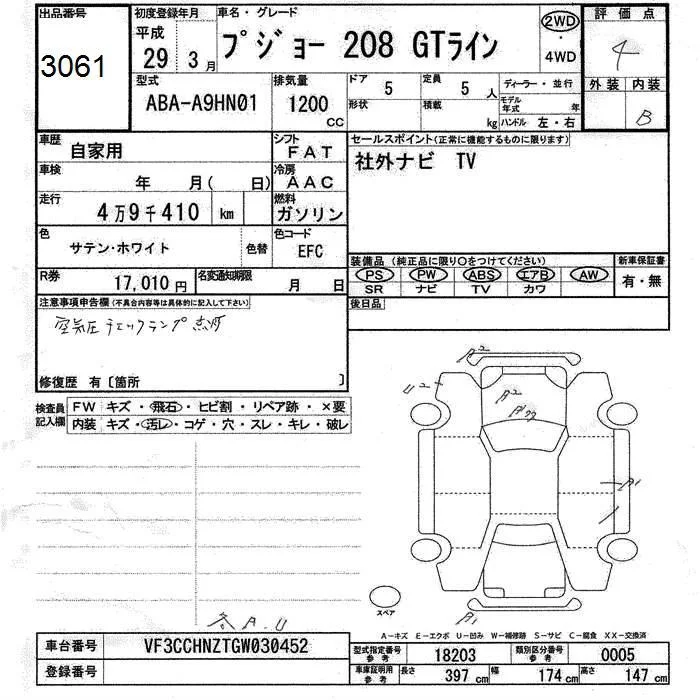 出品番号 初度登録年月 車名・グレード 2WD 評価点
3061 平成 29 3月 プジョー 208 GTライン ・ 4WD 4
型式 排気量 ドア 5 定員 5人 ディーラー・並行 外装 内装
ABA-A9HN01 1200 CC 形状 積載 kg モデル年式 年 ハンドル 左・右 B
車歴 自家用 シフト FAT セールスポイント(正常に機能するものに限ります)
車検 年 月( 日) 冷房 AAC 社外ナビ TV
走行 4万9千410 km 燃料 ガソリン
色 サテン・ホワイト 色替 色コード EFC
装備品 (純正品に限り○をつけてください) 新車保証書
R券 17,010円 名変通知期限 月 日 PS PW ABS エアB AW 有・無
SR ナビ TV カワ
注意事項申告欄(不具合内容等は具体的に記入して下さい) 後日品
空気圧チェックランプ点灯
修復歴 有〔箇所 〕
検査員記入欄 FW キズ・飛石・ヒビ割・リペア跡・×要
内装 キズ・汚レ・コゲ・穴・スレ・キレ・破レ
A2
U2
A2
A1
A1
スペア
各A.U
A-キズ E-エクボ U-凹み W-補修跡 S-サビ C-腐食 XX-交換済
車台番号 VF3CCHNZTGW030452 型式指定番号 参考 18203 類別区分番号 参考 0005
登録番号 車庫証明用 参考 長さ 397 cm 幅 174 cm 高さ 147 cm